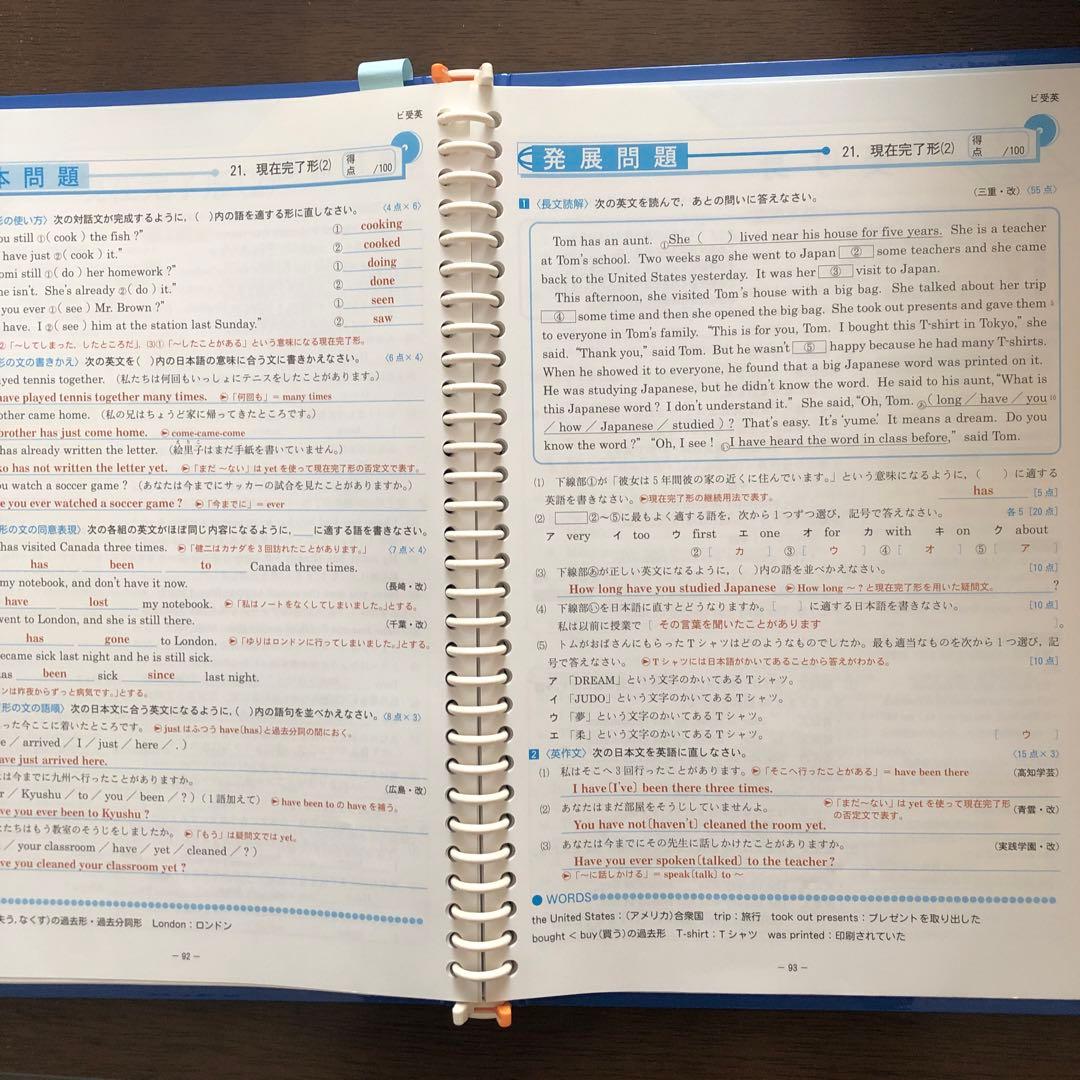 ビ受英
本問題
21. 現在完了形⑵
得点 /100
形の使い方〉 次の対話文が完成するように，（ ）内の語を適する形に直しなさい。 〈4点×6〉
ou still ①( cook ) the fish ?”
have just ②( cook ) it.”
omi still ①( do ) her homework ?”
he isn't. She's already ②( do ) it.”
you ever ①( see ) Mr. Brown ?”
have. I ②( see ) him at the station last Sunday.”
① cooking
② cooked
① doing
② done
① seen
② saw
②「～してしまった，したところだ」，⑶①「～したことがある」という意味になる現在完了形。
形の文の書きかえ〉 次の英文を（ ）内の日本語の意味に合う文に書きかえなさい。 〈6点×4〉
ayed tennis together. （私たちは何回もいっしょにテニスをしたことがあります。）
have played tennis together many times. 「何回も」= many times
other came home. （私の兄はちょうど家に帰ってきたところです。）
brother has just come home. come-came-come
has already written the letter. （絵里子はまだ手紙を書いていません。）
ko has not written the letter yet. 「まだ ～ない」は yet を使って現在完了形の否定文で表す。
ou watch a soccer game ? （あなたは今までにサッカーの試合を見たことがありますか。）
e you ever watched a soccer game ? 「今までに」= ever
形の文の同意表現〉 次の各組の英文がほぼ同じ内容になるように，＿＿に適する語を書きなさい。
has visited Canada three times. 「健二はカナダを3回訪れたことがあります。」 〈7点×4〉
has been to Canada three times.
my notebook, and don't have it now. （長崎・改）
have lost my notebook. 「私はノートをなくしてしまいました。」とする。
went to London, and she is still there. （千葉・改）
has gone to London. 「ゆりはロンドンに行ってしまいました。」とする。
became sick last night and he is still sick.
as been sick since last night.
ンは昨夜からずっと病気です。」とする。
形の文の語順〉 次の日本文に合う英文になるように，（ ）内の語句を並べかえなさい。〈8点×3〉
った今ここに着いたところです。 just はふつう have〔has〕と過去分詞の間におく。
e / arrived / I / just / here / . )
ave just arrived here.
は今までに九州へ行ったことがありますか。 （広島・改）
r / Kyushu / to / you / been / ? )（1語加えて） have been to の have を補う。
ve you ever been to Kyushu ?
たちはもう教室のそうじをしましたか。 「もう」は疑問文では yet.
/ your classroom / have / yet / cleaned / ? )
ve you cleaned your classroom yet ?
失う，なくす)の過去形・過去分詞形 London：ロンドン
－ 92 －
ビ受英
発展問題
21. 現在完了形⑵
得点 /100
1 〈長文読解〉 次の英文を読んで，あとの問いに答えなさい。 （三重・改）〈55点〉
Tom has an aunt. ①She ( ) lived near his house for five years. She is a teacher
at Tom's school. Two weeks ago she went to Japan ② some teachers and she came
back to the United States yesterday. It was her ③ visit to Japan.
This afternoon, she visited Tom's house with a big bag. She talked about her trip
④ some time and then she opened the big bag. She took out presents and gave them 5
to everyone in Tom's family. “This is for you, Tom. I bought this T-shirt in Tokyo,” she
said. “Thank you,” said Tom. But he wasn't ⑤ happy because he had many T-shirts.
When he showed it to everyone, he found that a big Japanese word was printed on it.
He was studying Japanese, but he didn't know the word. He said to his aunt, “What is
this Japanese word ? I don't understand it.” She said, “Oh, Tom. ㋐( long / have / you 10
/ how / Japanese / studied ) ? That's easy. It's ‘yume.’ It means a dream. Do you
know the word ?” “Oh, I see ! ㋑I have heard the word in class before,” said Tom.
⑴ 下線部①が「彼女は5年間彼の家の近くに住んでいます。」という意味になるように，（ ）に適する
英語を書きなさい。 現在完了形の継続用法で表す。 has [5点]
⑵ ②～⑤に最もよく適する語を，次から1つずつ選び，記号で答えなさい。 各5[20点]
ア very イ too ウ first エ one オ for カ with キ on ク about
②〔 カ 〕 ③〔 ウ 〕 ④〔 オ 〕 ⑤〔 ア 〕
⑶ 下線部あが正しい英文になるように，（ ）内の語を並べかえなさい。 [10点]
How long have you studied Japanese How long ～ ? と現在完了形を用いた疑問文。 ?
⑷ 下線部いを日本語に直すとどうなりますか。〔 〕に適する日本語を書きなさい。 [10点]
私は以前に授業で〔 その言葉を聞いたことがあります 〕。
⑸ トムがおばさんにもらったTシャツはどのようなものでしたか。最も適当なものを次から1つ選び，記
号で答えなさい。 Tシャツには日本語がかいてあることから答えがわかる。 [10点]
ア 「DREAM」という文字のかいてあるTシャツ。
イ 「JUDO」という文字のかいてあるTシャツ。
ウ 「夢」という文字のかいてあるTシャツ。
エ 「柔」という文字のかいてあるTシャツ。 〔 ウ 〕
2 〈英作文〉 次の日本文を英語に直しなさい。 〈15点×3〉
⑴ 私はそこへ3回行ったことがあります。 「そこへ行ったことがある」= have been there （高知学芸）
I have〔I've〕been there three times.
⑵ あなたはまだ部屋をそうじしていませんよ。 「まだ～ない」は yet を使って現在完了形の否定文で表す。 （青雲・改）
You have not〔haven't〕cleaned the room yet.
⑶ あなたは今までにその先生に話しかけたことがありますか。 （実践学園・改）
Have you ever spoken〔talked〕to the teacher ?
「～に話しかける」= speak〔talk〕to ～
● WORDS
the United States：(アメリカ)合衆国 trip：旅行 took out presents：プレゼントを取り出した
bought < buy(買う)の過去形 T-shirt：Tシャツ was printed：印刷されていた
－ 93 －